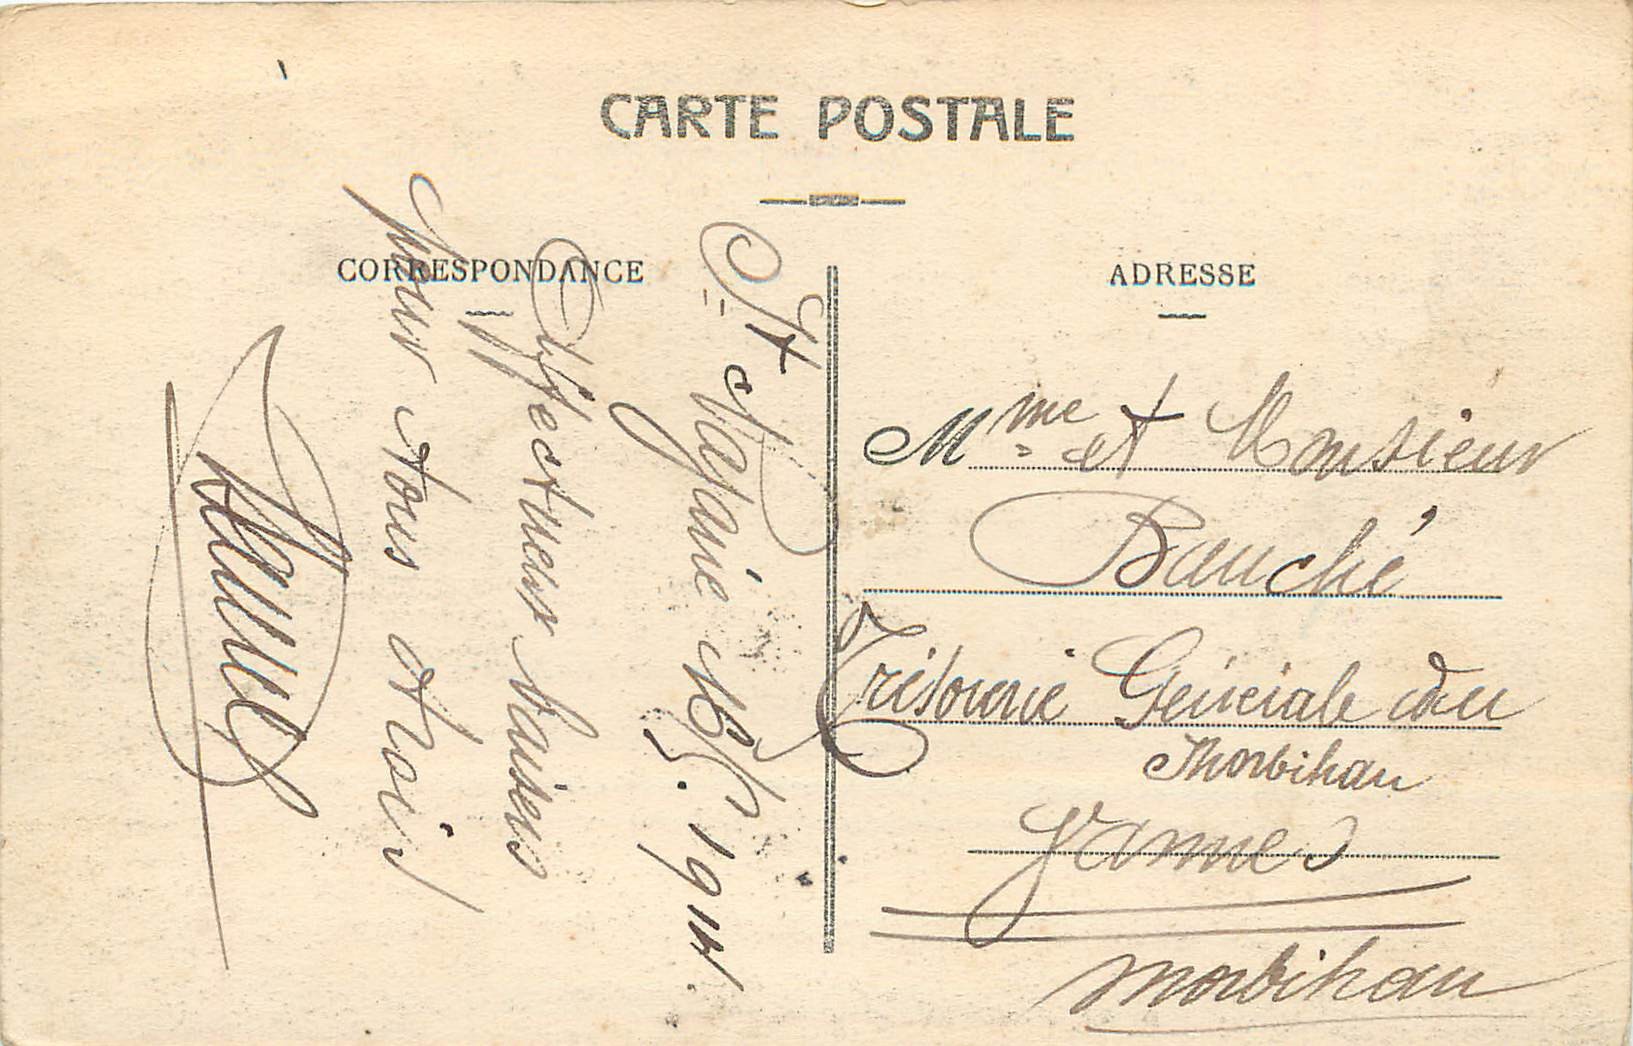 CARTE POSTALE
CORRESPONDANCE
ADRESSE
St Nazaire 16/5. 1914.
Affectueux baisers
pour tous trois
Mme et Monsieur
Bauché
Trésorerie Générale du
Morbihan
Vannes
Morbihan